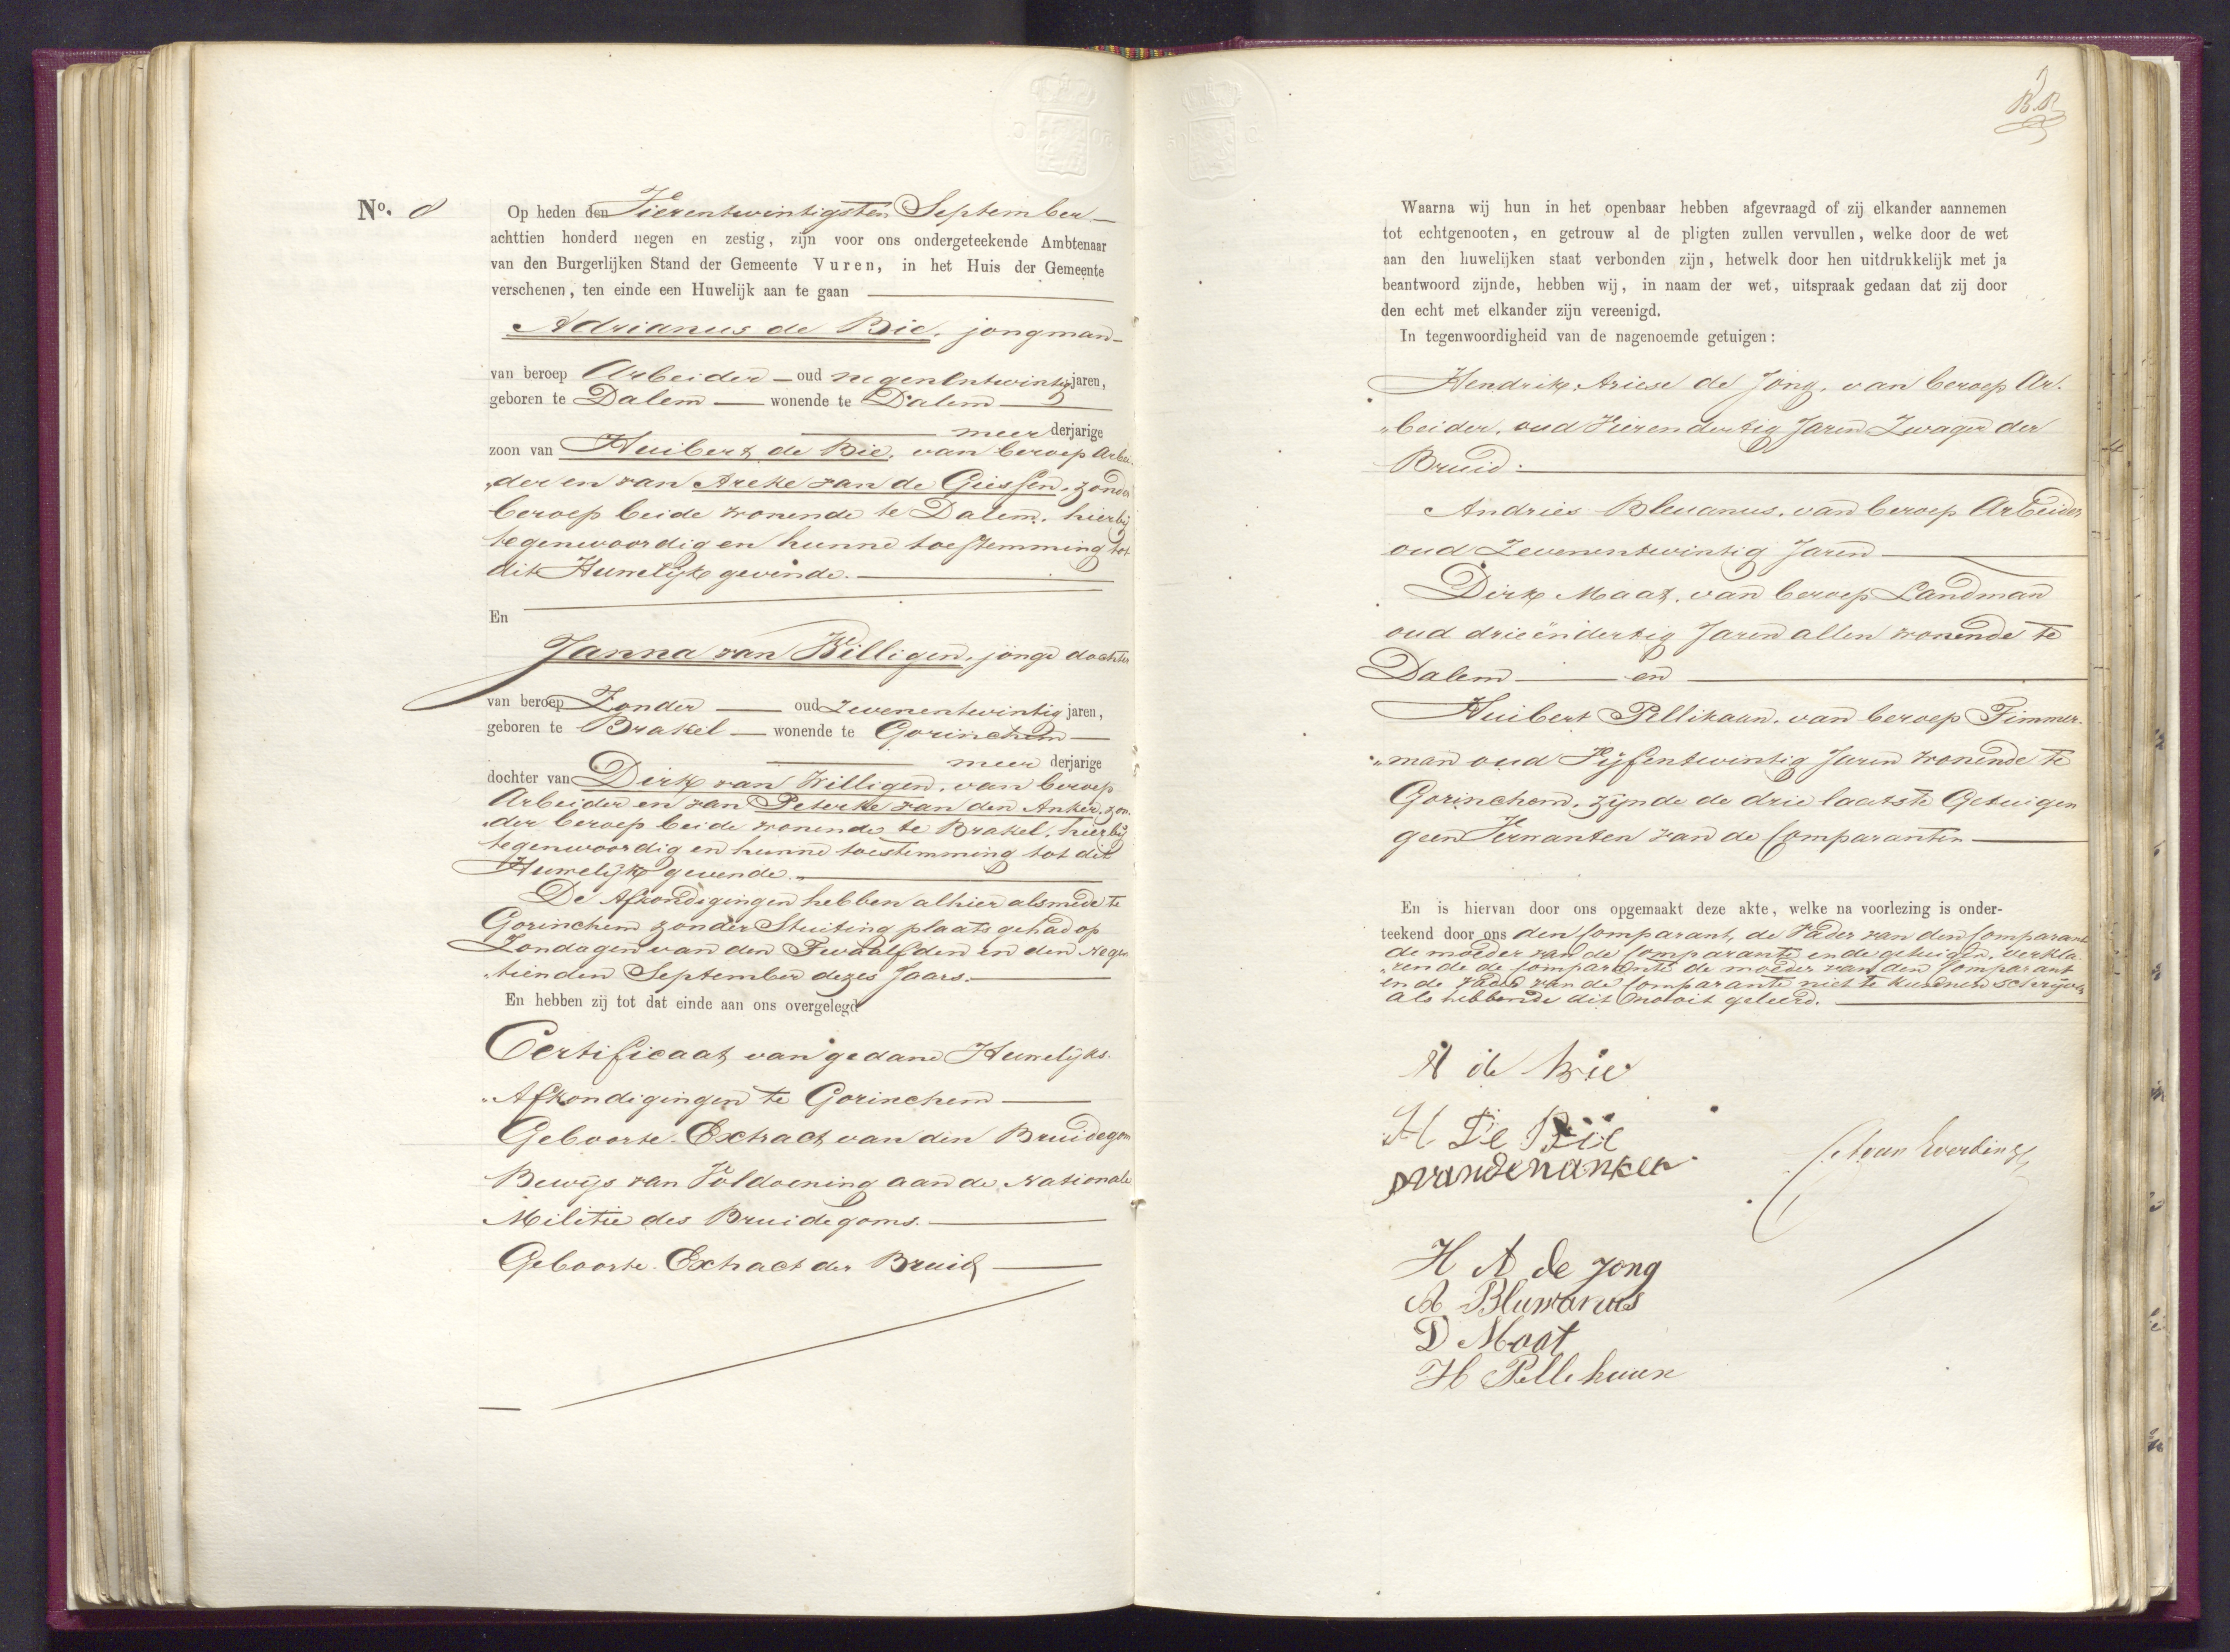 No. 8
Op heden den Vierentwintigsten September
achttien honderd negen en zestig, zijn voor ons ondergeteekende Ambtenaar
van den Burgerlijken Stand der Gemeente Vuren, in het Huis der Gemeente
verschenen, ten einde een Huwelijk aan te gaan
Adrianus de Bie, jongman
van beroep Arbeider oud negenentwintig jaren,
geboren te Dalem wonende te Dalem
meer derjarige
zoon van Huibert de Bie, van beroep Arbei-
„der en van Areke van de Giessen, zonder
beroep beide wonende te Dalem, hierbij
tegenwoordig en hunne toestemming tot
dit Huwelijk gevende.
En
Janna van Willigen, jonge dochter
van beroep Zonder oud Zevenentwintig jaren,
geboren te Brakel wonende te Gorinchem
meer derjarige
dochter van Dirk van Willigen, van beroep
Arbeider en van Peterke van den Anker, zon-
„der beroep beide wonende te Brakel, hierbij
tegenwoordig en hunne toestemming tot dit
Huwelijk gevende.
De Afkondigingen hebben alhier alsmede te
Gorinchem zonder Stuiting plaats gehad op
Zondagen van den Twaalfden en den Negen
„tienden September dezes Jaars.
En hebben zij tot dat einde aan ons overgelegd
Certificaat van gedane Huwelijks-
„Afkondigingen te Gorinchem
Geboorte-Extract van den Bruidegom
Bewijs van Voldoening aan de Nationale
Militie des Bruidegoms.
Geboorte-Extract der Bruid
Waarna wij hun in het openbaar hebben afgevraagd of zij elkander aannemen
tot echtgenooten, en getrouw al de pligten zullen vervullen, welke door de wet
aan den huwelijken staat verbonden zijn, hetwelk door hen uitdrukkelijk met ja
beantwoord zijnde, hebben wij, in naam der wet, uitspraak gedaan dat zij door
den echt met elkander zijn vereenigd.
In tegenwoordigheid van de nagenoemde getuigen:
Hendrik Ariese de Jong, van beroep Ar-
„beider, oud Vierendertig Jaren Zwager der
Bruid.
Andries Bleuanus, van beroep Arbeider
oud Zevenentwintig Jaren
Dirk Maat, van beroep Landman
oud drieëndertig Jaren allen wonende te
Dalem en
Huibert Pellikaan, van beroep Timmer-
„man oud Vijfentwintig Jaren wonende te
Gorinchem, zijnde de drie laatste Getuigen
geen Verwanten van de Comparanten
En is hiervan door ons opgemaakt deze akte, welke na voorlezing is onder-
teekend door ons den Comparant, de Vader van den Comparant
de moeder van de Comparante en de getuigen, verkla-
„rende de Comparante de moeder van den Comparant
en de vader van de Comparante niet te kunnen schrijven
als hebbende dit nooit geleerd.
A de Bie
H De Bie
P vandenanker
H A de Jong
A Bluwanus
D Maat
H Pellekaan